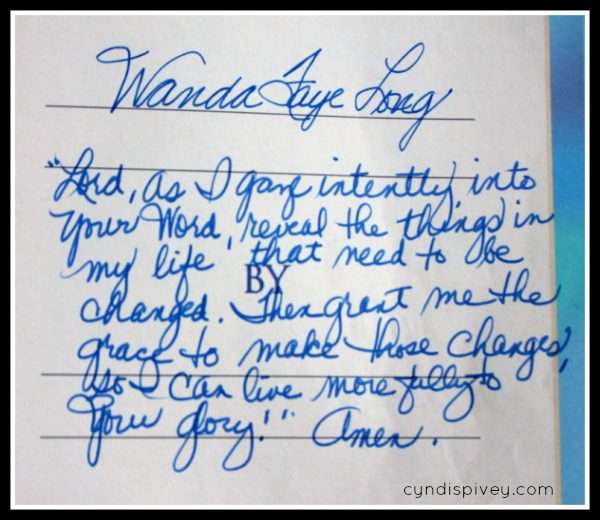 Wanda Faye Long
"Lord, as I gaze intently into
Your Word, reveal the things in
my life that need to be
BY
changed. Then grant me the
grace to make those changes,
so I can live more fully to
Your glory!" Amen.
cyndispivey.com